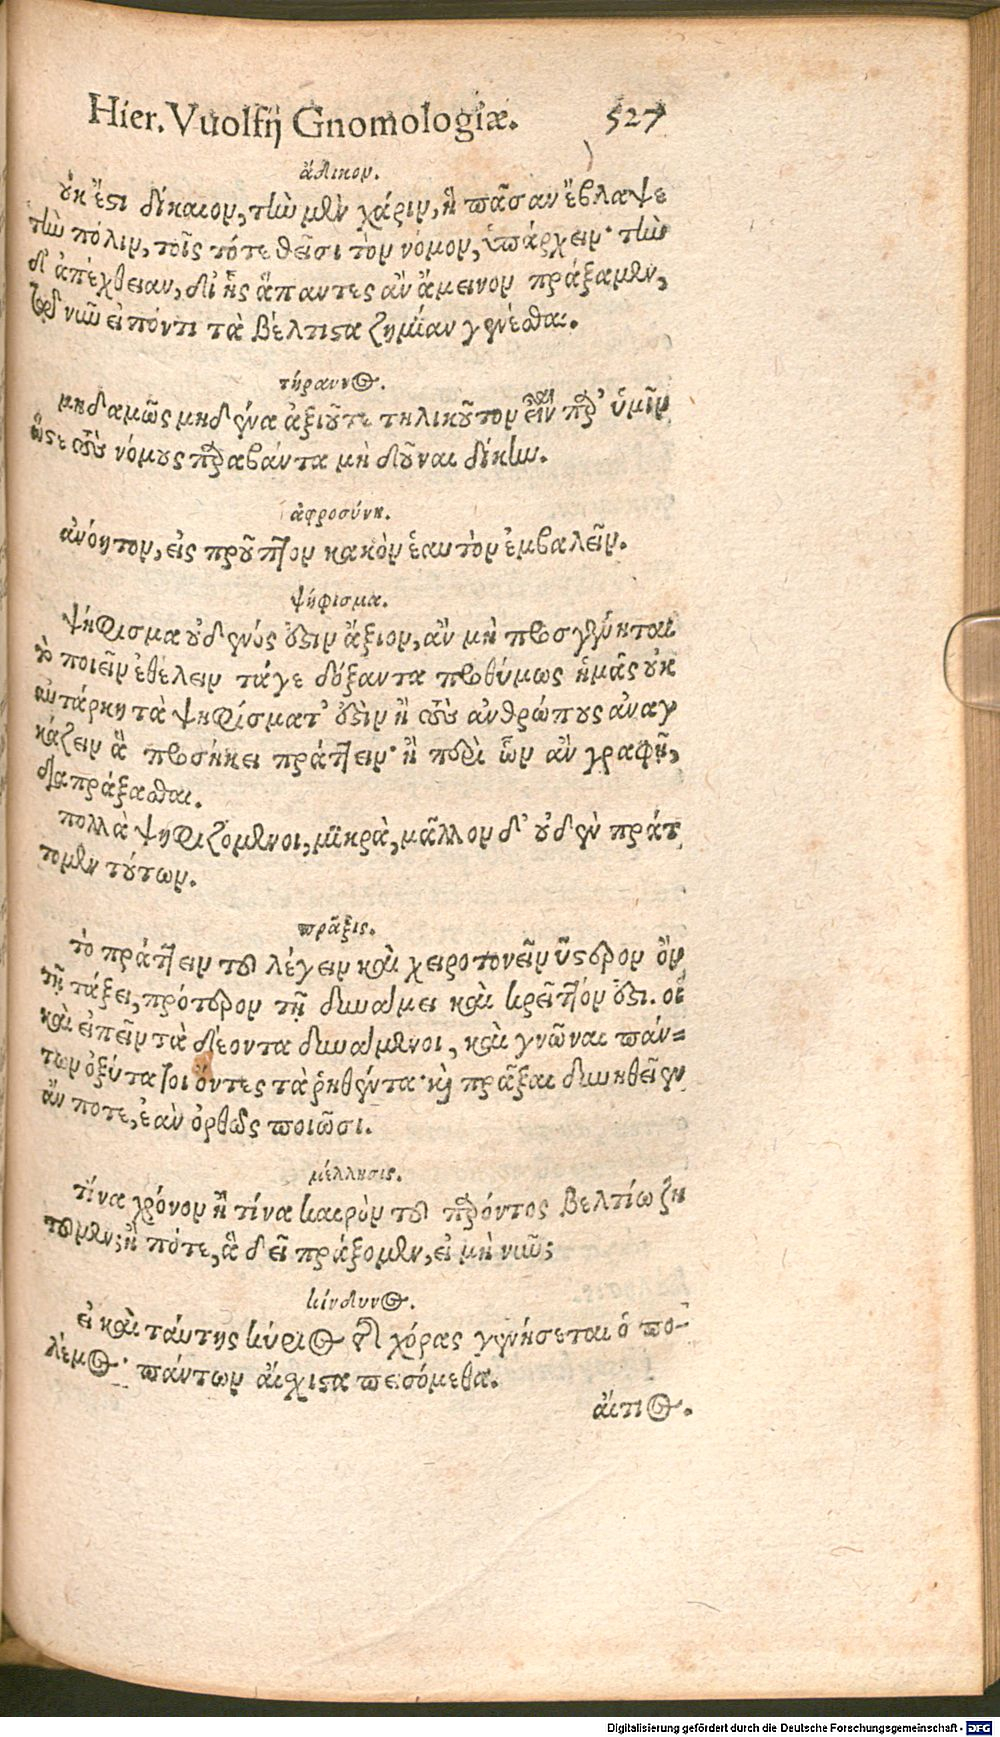 Hier. Vuolfij Gnomologiæ. 527
ἄδικον.
οὐκ ἔστι δίκαιον, τὴν μὲν χάριν, ἣ πᾶσαν ἔβλαψε
τὴν πόλιν, τοῖς τότε θεῖσι τὸν νόμον, ὑπάρχειν· τὴν
δ' ἀπέχθειαν, δι' ἧς ἅπαντες ἂν ἄμεινον πράξαμεν,
τῷ νῦν εἰπόντι τὰ βέλτιστα ζημίαν γενέσθαι.
τύραννος.
μηδαμῶς μηδένα ἀξιοῦτε τηλικοῦτον εἶναι παρ' ὑμῖν
ὥστε τοὺς νόμους παραβάντα μὴ δοῦναι δίκην.
ἀφροσύνη.
ἀνόητον, εἰς προὖπτον κακὸν ἑαυτὸν ἐμβαλεῖν.
ψήφισμα.
ψήφισμα οὐδενός ἐστιν ἄξιον, ἂν μὴ προσγένηται
τὸ ποιεῖν ἐθέλειν τάγε δόξαντα προθύμως ἡμᾶς οὐκ
αὐτάρκη τὰ ψηφίσματ' ἐστὶν ἢ τοὺς ἀνθρώπους ἀναγ
κάζειν ἃ προσήκει πράττειν· ἢ περὶ ὧν ἂν γραφῇ,
διαπράξασθαι.
πολλὰ ψηφιζόμενοι, μικρὰ, μᾶλλον δ' οὐδὲν πράτ
τομεν τούτων.
πρᾶξις.
τὸ πράττειν τοῦ λέγειν καὶ χειροτονεῖν ὕστερον ὂν
τῇ τάξει, πρότερον τῇ δυνάμει καὶ κρεῖττόν ἐστι. οἱ
καὶ εἰπεῖν τὰ δέοντα δυνάμενοι, καὶ γνῶναι πάν=
των ὀξύτατοι ὄντες τὰ ῥηθέντα· καὶ πρᾶξαι δυνηθεῖεν
ἄν ποτε, ἐὰν ὀρθῶς ποιῶσι.
μέλλησις.
τίνα χρόνον ἢ τίνα καιρὸν τοῦ παρόντος βελτίω ζη
τοῦμεν; ἢ πότε, ἃ δεῖ πράξομεν, εἰ μὴ νῦν;
κίνδυνος.
εἰ καὶ ταύτης κύριος τῆς χόρας γενήσεται ὁ πο-
λεμος· πάντων αἴσχιστα πεισόμεθα.
αἴτιος.
Digitalisierung gefördert durch die Deutsche Forschungsgemeinschaft - DFG